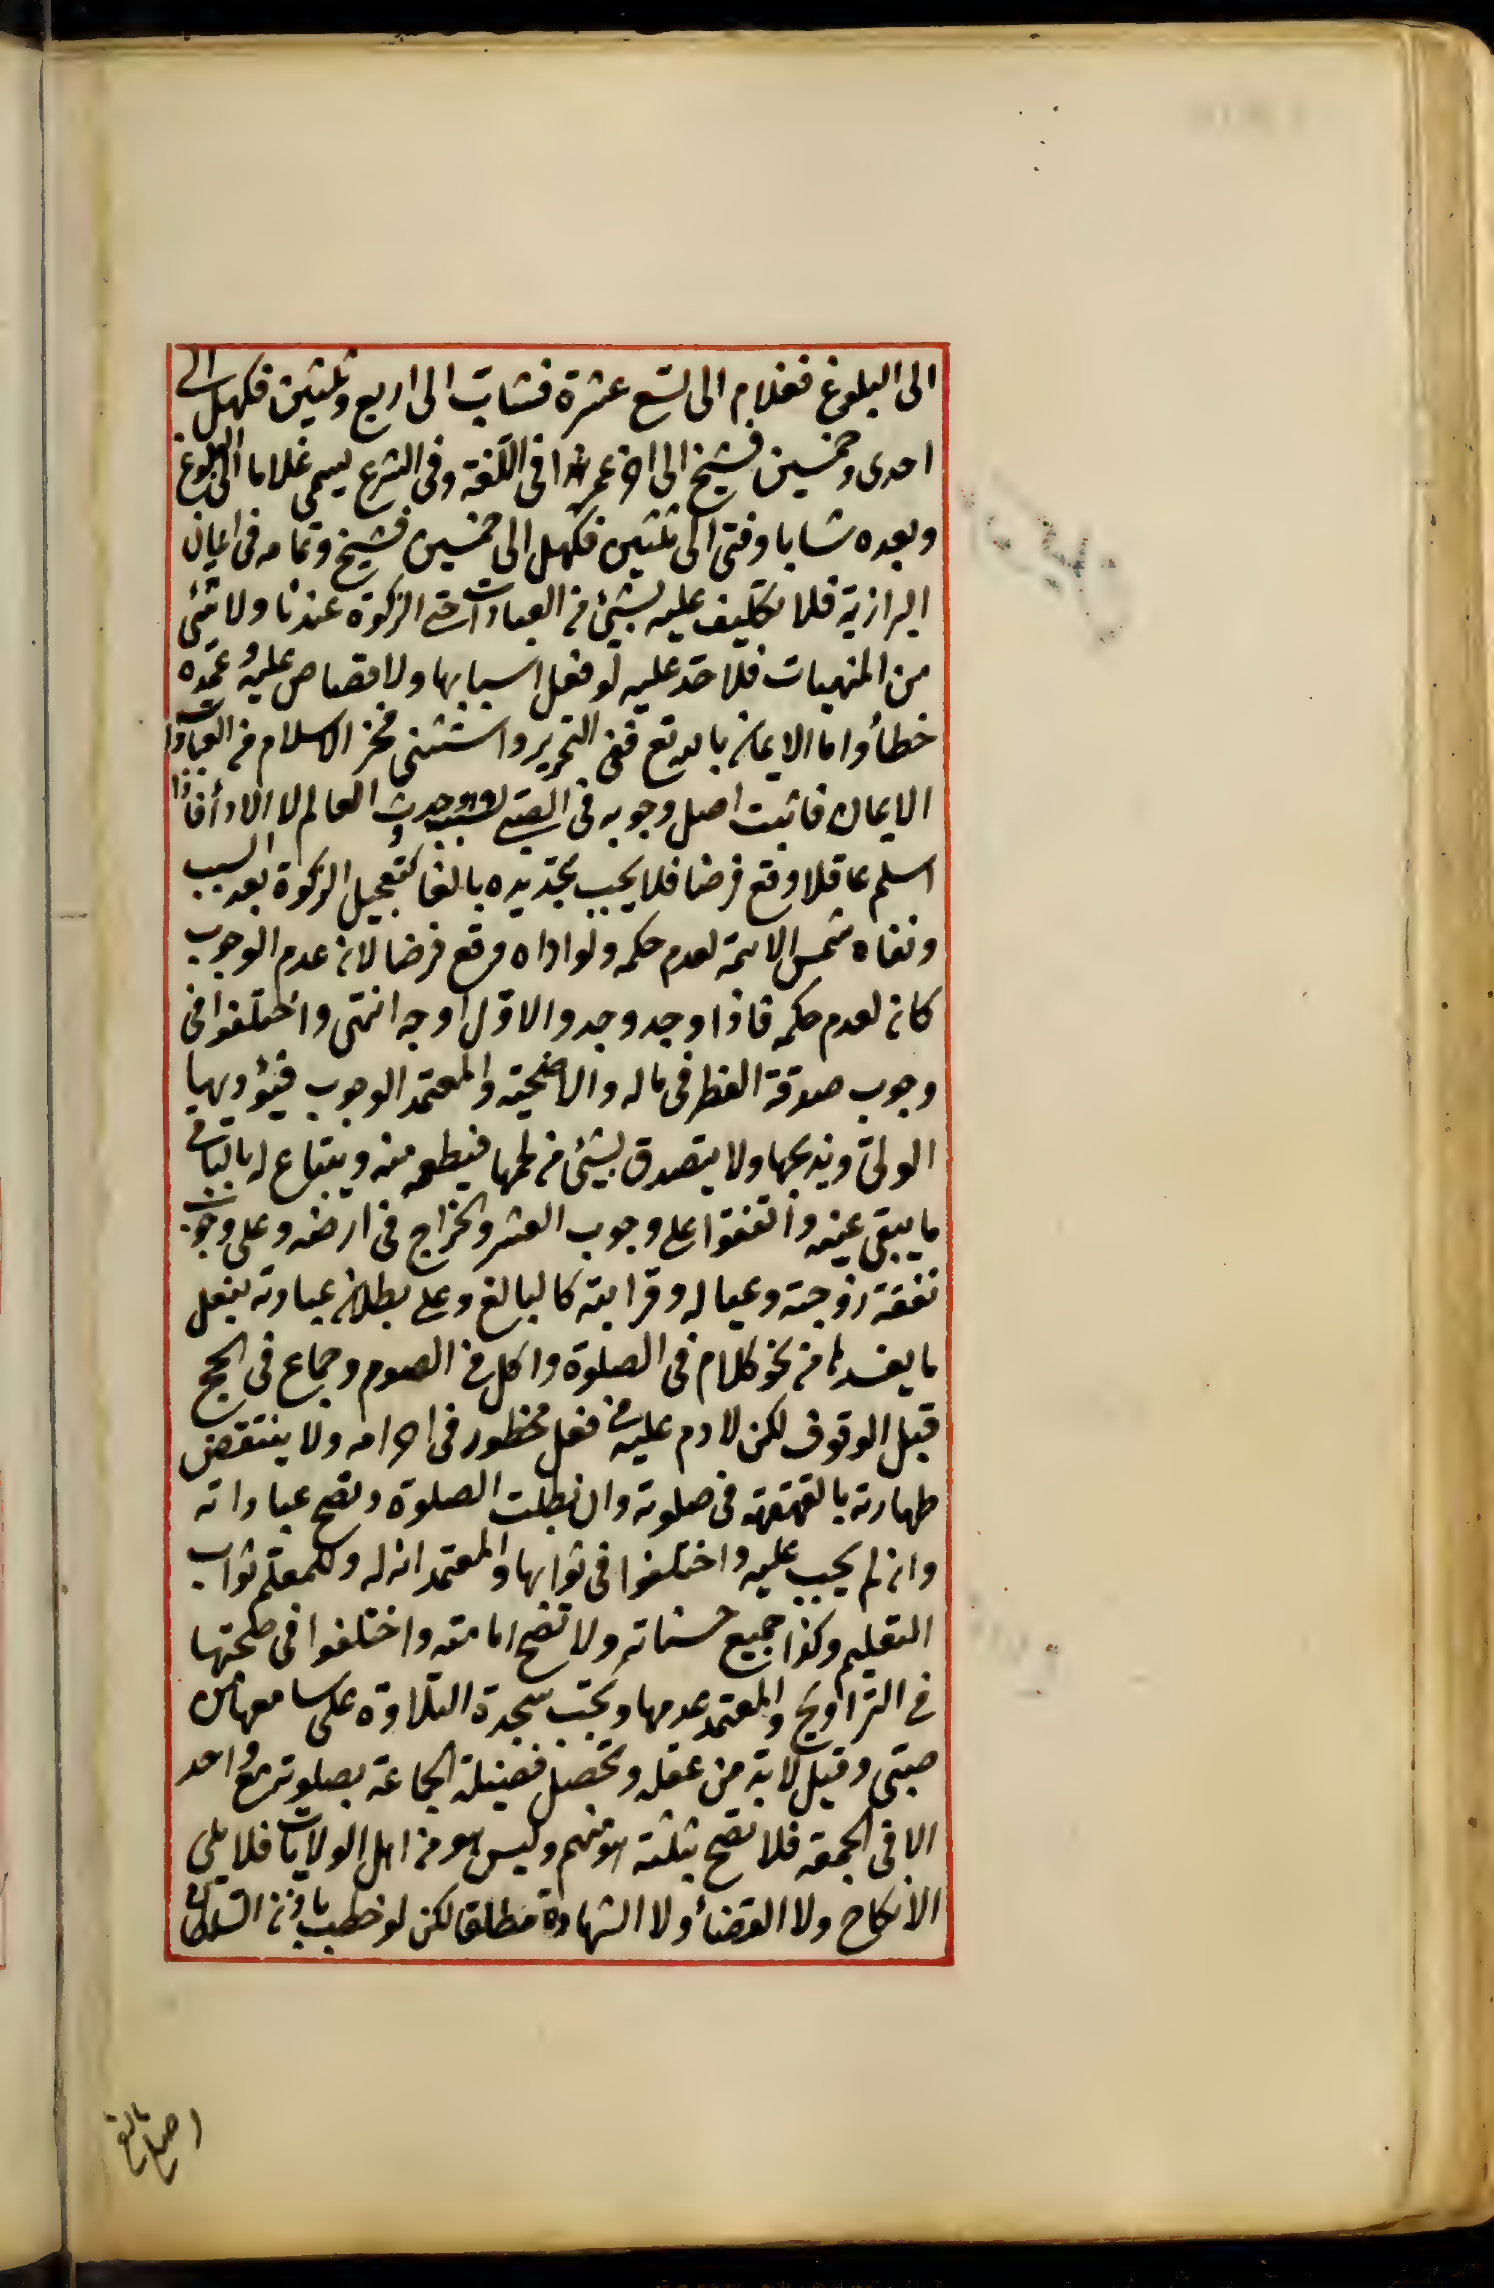 الى البلوغ فغلام الى تسع عشرة فشاب الى اربع وثلثين فكهل الى
احدى وخمسين فشيخ الى اخر عمره هذا فى اللغة وفى الشرع يسمى غلاما الى البلوغ
وبعده شابا وفتى الى ثلثين فكهل الى خمسين فشيخ وتمامه فى ايمان
البزازية فلا تكليف عليه بشئ من العبادات حتى الزكوة عندنا ولا شئ
من المنهيات فلا حد عليه لو فعل اسبابها ولا قصاص عليه وعمده
خطأ واما الايمان بالله تع ففى التحرير واستثنى فخر الاسلام من العبادات
الايمان فاثبت اصل وجوبه فى الصبى لسببه وهو حدوث العالم لا الاداء فاذا
اسلم عاقلا وقع فرضا فلا يجب تجديده بالغا كتعجيل الزكوة بعد السبب
ونفاه شمس الائمة لعدم حكمه ولو اداه وقع فرضا لان عدم الوجوب
كان لعدم حكمه فاذا وجد وجد والاول اوجه انتهى واختلفوا فى
وجوب صدقة الفطر فى ماله والاضحية والمعتمد الوجوب فيؤديها
الولى ويذبحها ولا يتصدق بشئ من لحمها فيطعمه منه ويبتاع له بالباقى
ما يبقى عينه واتفقوا على وجوب العشر والخراج فى ارضه وعلى وجوب
نفقة زوجته وعياله وقرابته كالبالغ وعلى بطلان عبادته بفعل
ما يفسدها من نحو كلام فى الصلوة واكل فى الصوم وجماع فى الحج
قبل الوقوف لكن لا دم عليه فى فعل محظور فى احرامه ولا ينتقض
طهارته بالقهقهة فى صلوته وان بطلت الصلوة وتصح عباداته
وان لم يجب عليه واختلفوا فى ثوابها والمعتمد انه له وللمعلم ثواب
التعليم وكذا جميع حسناته ولا تصح امامته واختلفوا فى صحتها
فى التراويح والمعتمد عدمها وتجب سجدة التلاوة على سامعها من
صبى وقيل لابد من عقله وتحصل فضيلة الجماعة بصلوته مع واحد
الا فى الجمعة فلا تصح بثلثة هو منهم وليس هو من اهل الولايات فلا يلى
الانكاح ولا القضاء ولا الشهادة مطلقا لكن لو خطب باذن السلطان